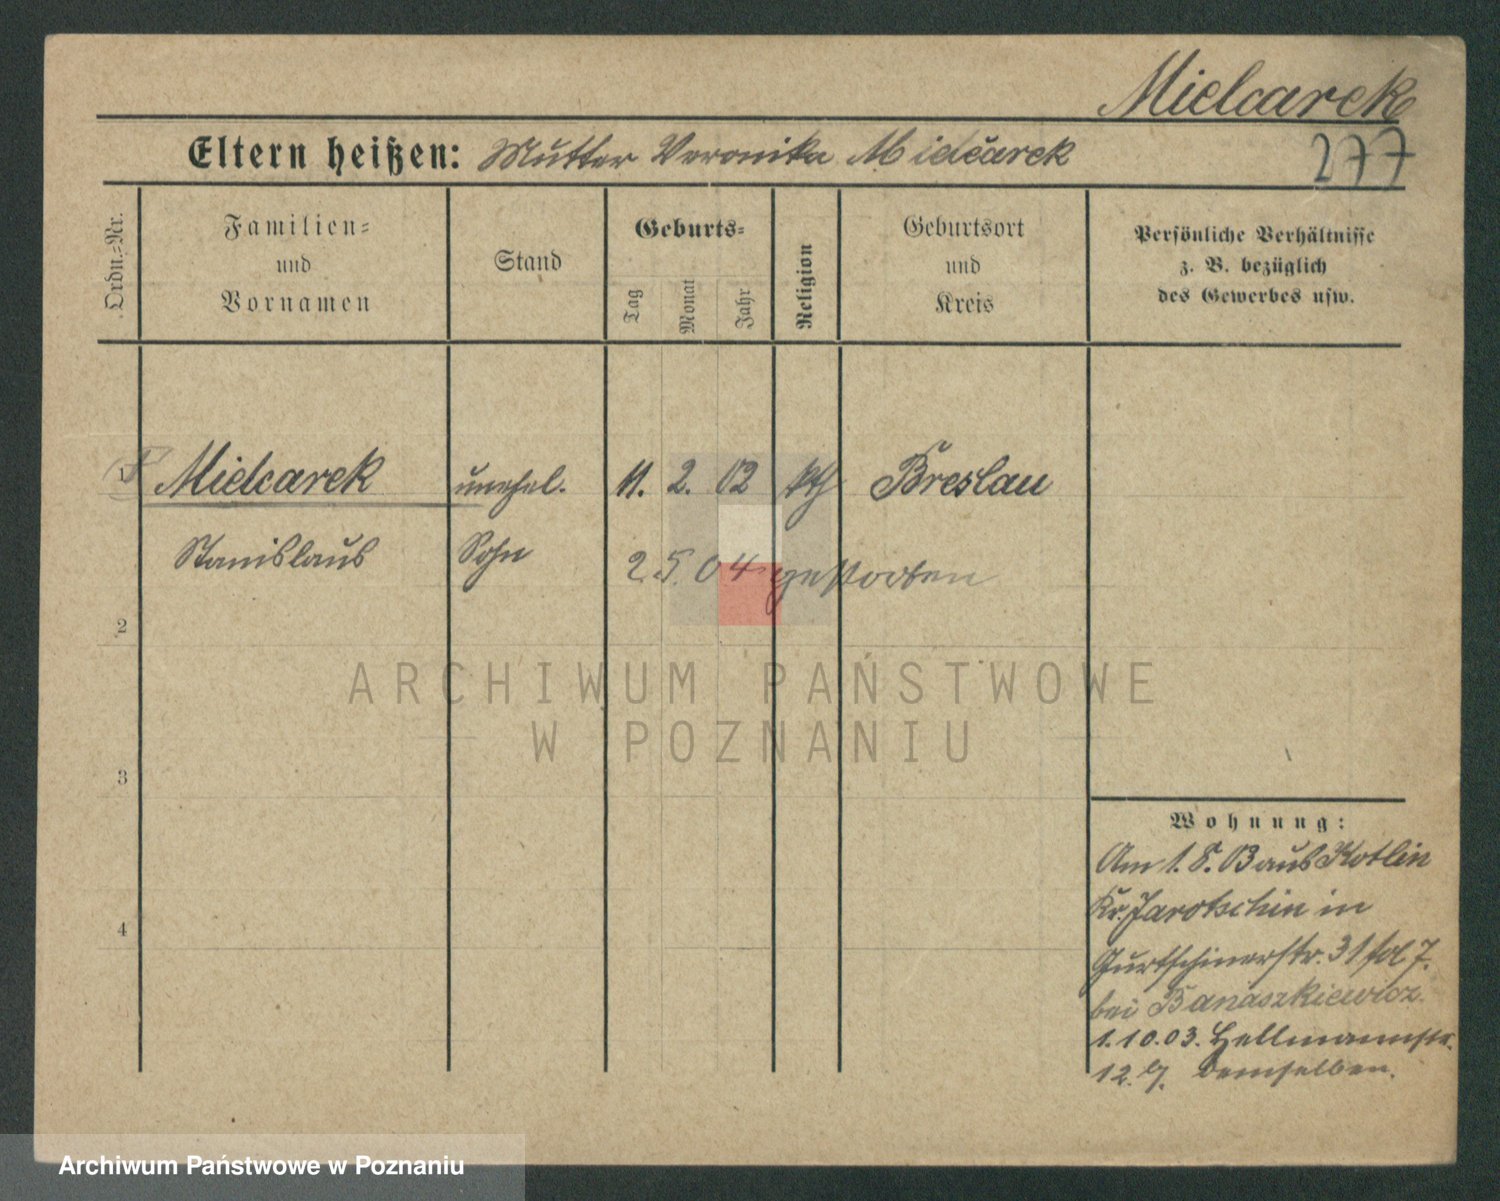 Mielcarek
Eltern heißen: Mutter Veronika Mielcarek
277
Ordn.-Nr.
Familien-
und
Vornamen
Stand
Geburts-
Tag
Monat
Jahr
Religion
Geburtsort
und
Kreis
Persönliche Verhältnisse
z. B. bezüglich
des Gewerbes usw.
1 Mielcarek unehel. 11. 2. 02 kth Breslau
Stanislaus Sohn
2 5. 04 gestorben
2
3
4
Wohnung:
Am 1. 8. 03 aus Kotlin
Kr. Jarotschin in
Gurtschinerstr. 31
bei Banaszkiewicz
1. 10. 03. Hellmannstr.
12. demselben.
ARCHIWUM PAŃSTWOWE
W POZNANIU
Archiwum Państwowe w Poznaniu